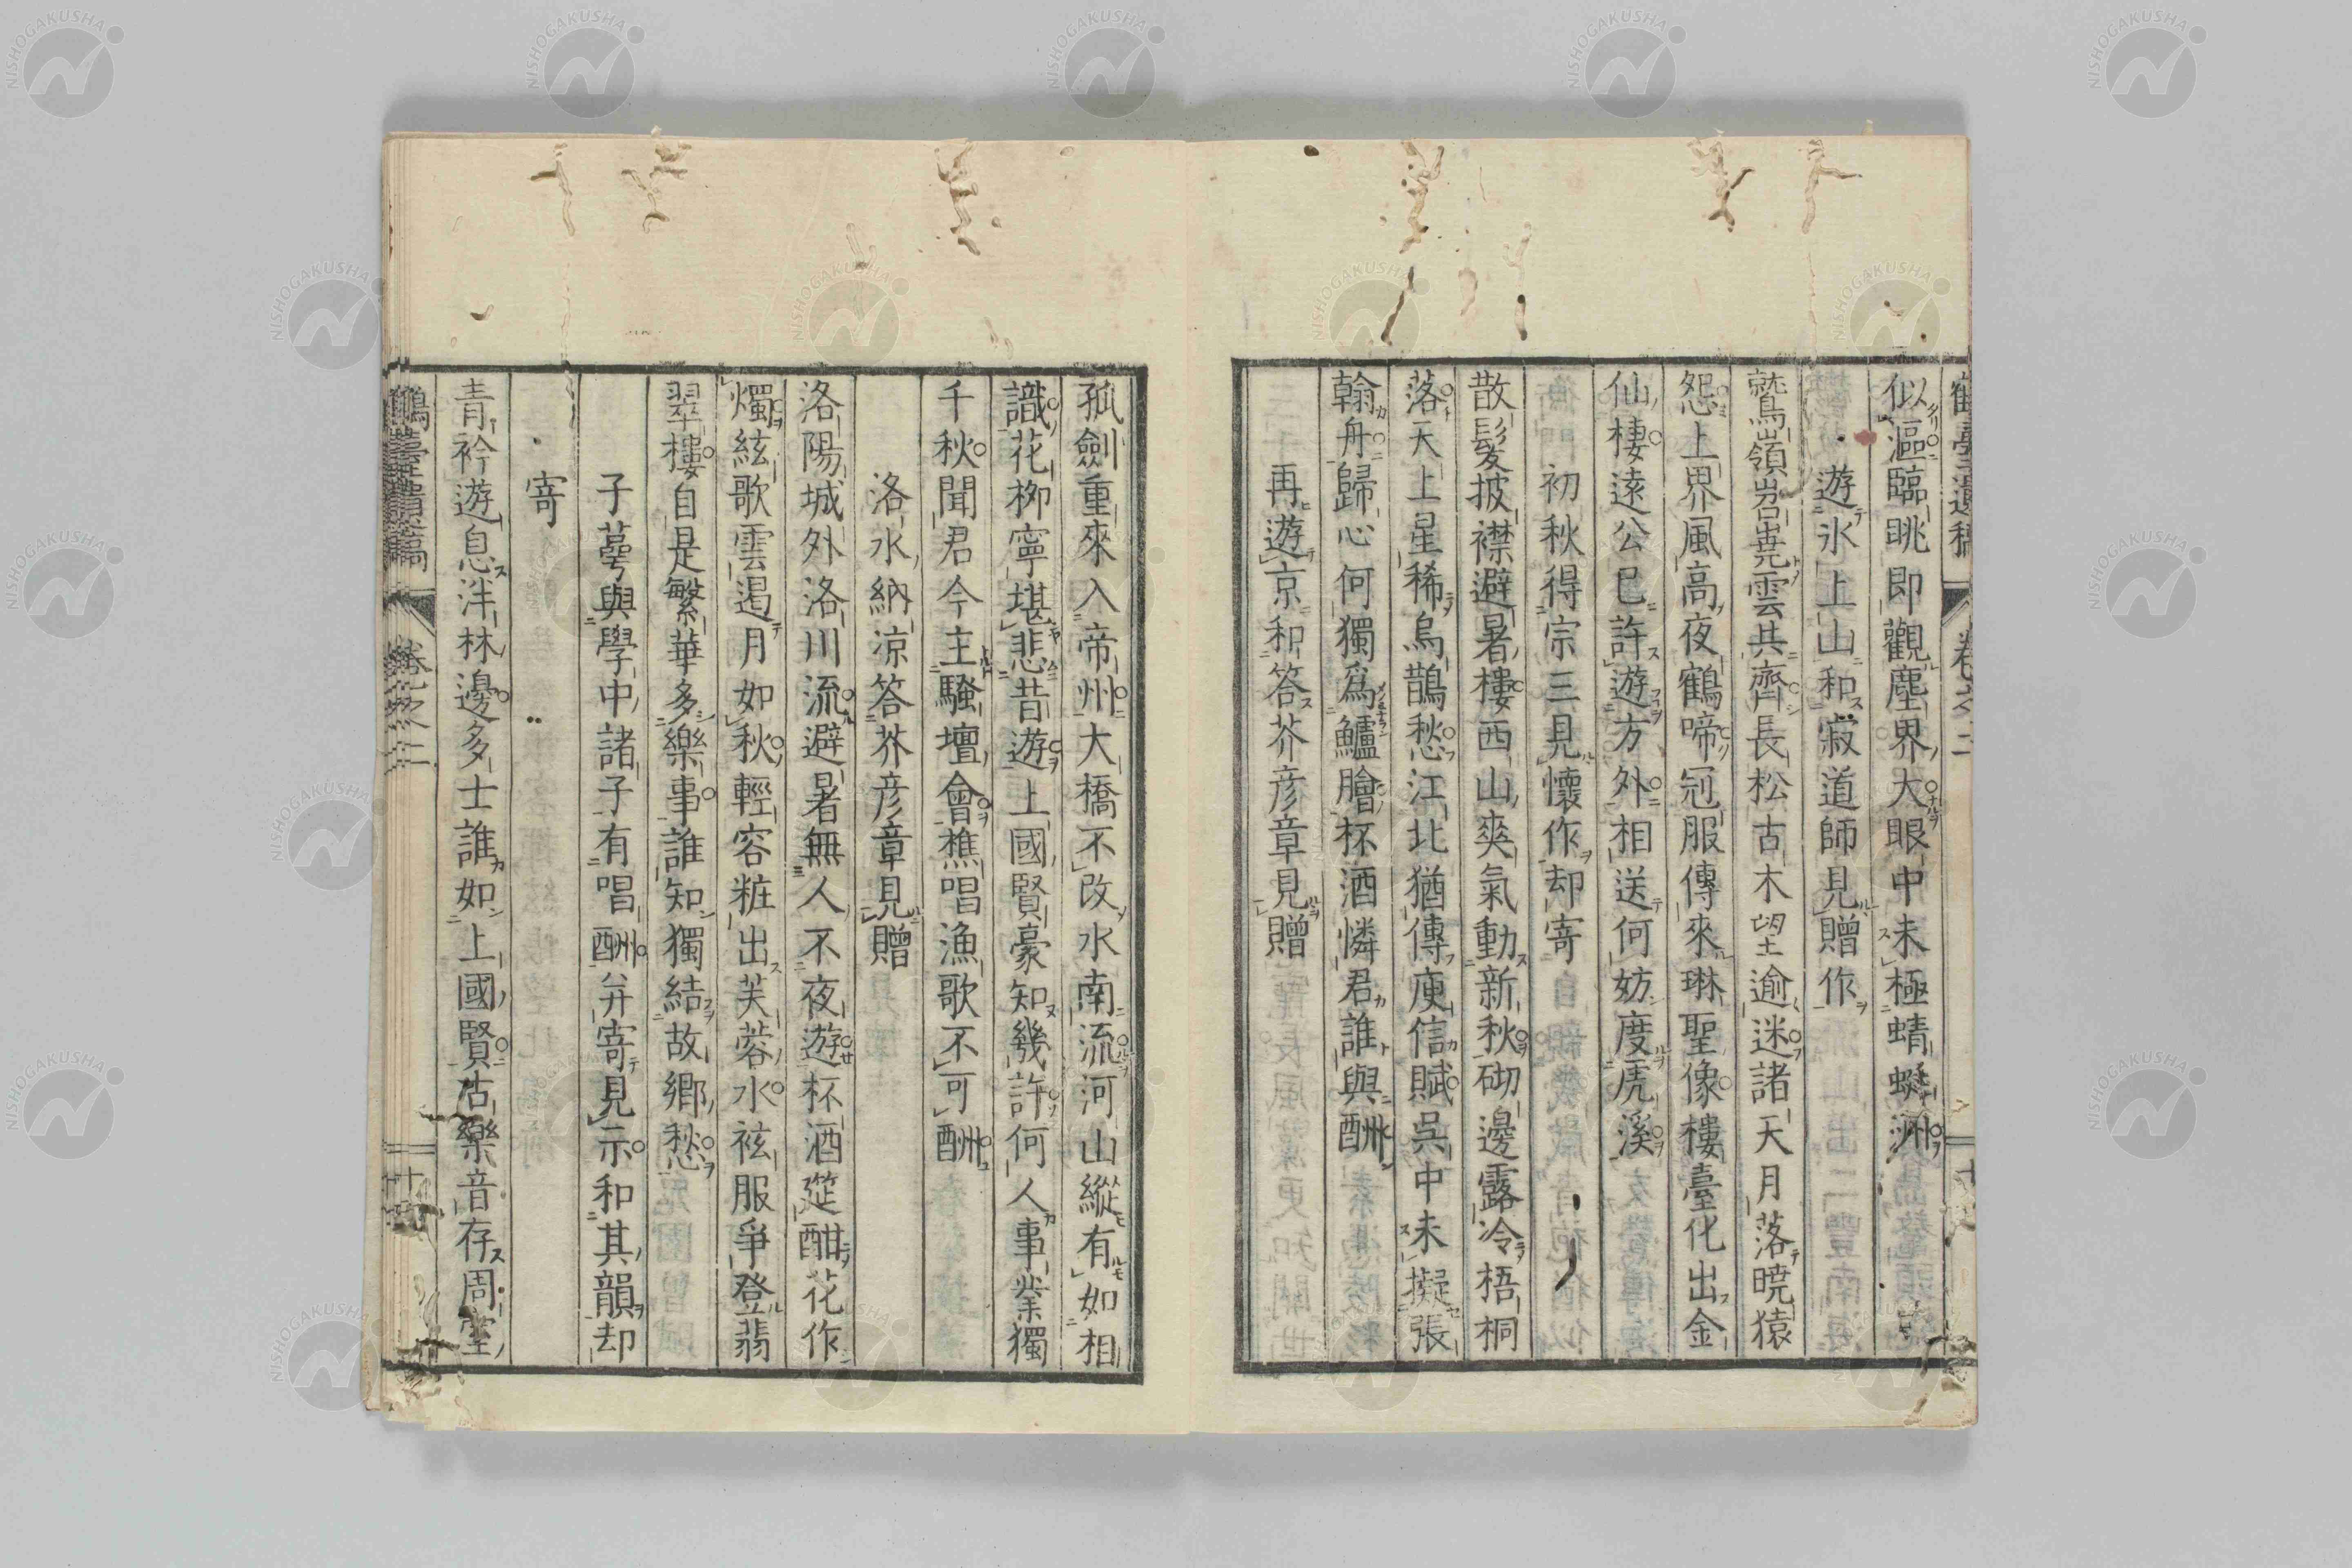 似漚臨眺即觀塵界大眼中未極蜻蜓洲
遊氷上山和寂道師見贈作
鷲嶺岧嶤雲共齊長松古木望逾迷諸天月落暁猿
怨上界風高夜鶴啼冠服傳來琳聖像樓臺化出金
仙棲遠公已許遊方外相送何妨度虎溪
初秋得宗三見懷作却寄
散髮披襟避暑樓西山爽氣動新秋砌邊露冷梧桐
落天上星稀烏鵲愁江北猶傳庾信賦吳中未擬張
翰舟歸心何獨爲鱸膾杯酒憐君誰與酬
再遊京和答芥彦章見贈
孤劍重來入帝州大橋不改水南流河山縱有如相
識花柳寧堪悲昔遊上國賢豪知幾許何人事業獨
千秋聞君今主騷壇會樵唱漁歌不可酬
洛水納凉答芥彦章見贈
洛陽城外洛川流避暑無人不夜遊杯酒筵酣花作
燭絃歌雲遏月如秋輕容粧出芙蓉水袨服爭登翡
翠樓自是繁華多樂事誰知獨結故鄉愁
子蕚與學中諸子有唱酬并寄見示和其韻却
寄
青衿遊息泮林邊多士誰如上國賢古樂音存周堂
鶴臺遺稿 卷之二 十